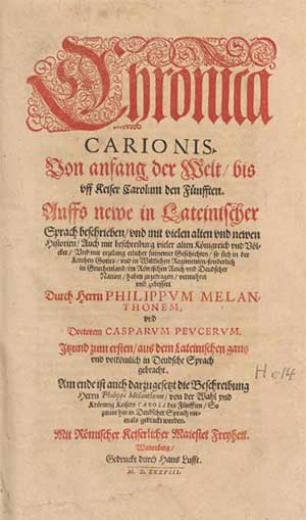 Chronica
CARIONIS.
Von anfang der Welt / bis
vff Keiser Carolum den Fünfften.
Auffs newe in Lateinischer
Sprach beschrieben / vnd mit vielen alten vnd newen
Historien / Auch mit beschreibung vieler alten Königreich vnd Völ-
cker / Vnd mit erzelung etlicher fürnemer Geschichten / so sich in der
Kirchen Gottes / vnd in Weltlichen Regimenten / sonderlich
in Griechenland / im Römischen Reich vnd Deudscher
Nation / haben zugetragen / vermehret
vnd gebessert
Durch Herrn PHILIPPVM MELAN-
THONEM,
vnd
Doctorem CASPARVM PEVCERVM.
Jtzund zum ersten / aus dem Lateinischen gantz
vnd volkömlich in Deudsche Sprach
gebracht.
H c 14
Am ende ist auch darzu gesetzt die Beschreibung
Herrn Philippi Melanthonis / von der Wahl vnd
Krönung Keisers CAROLI des Fünfften / So
zuuor nie in Deudscher Sprach
gedruckt worden.
Mit Römischer Keiserlicher Maiestet Freyheit.
Wittemberg /
Gedruckt durch Hans Lufft.